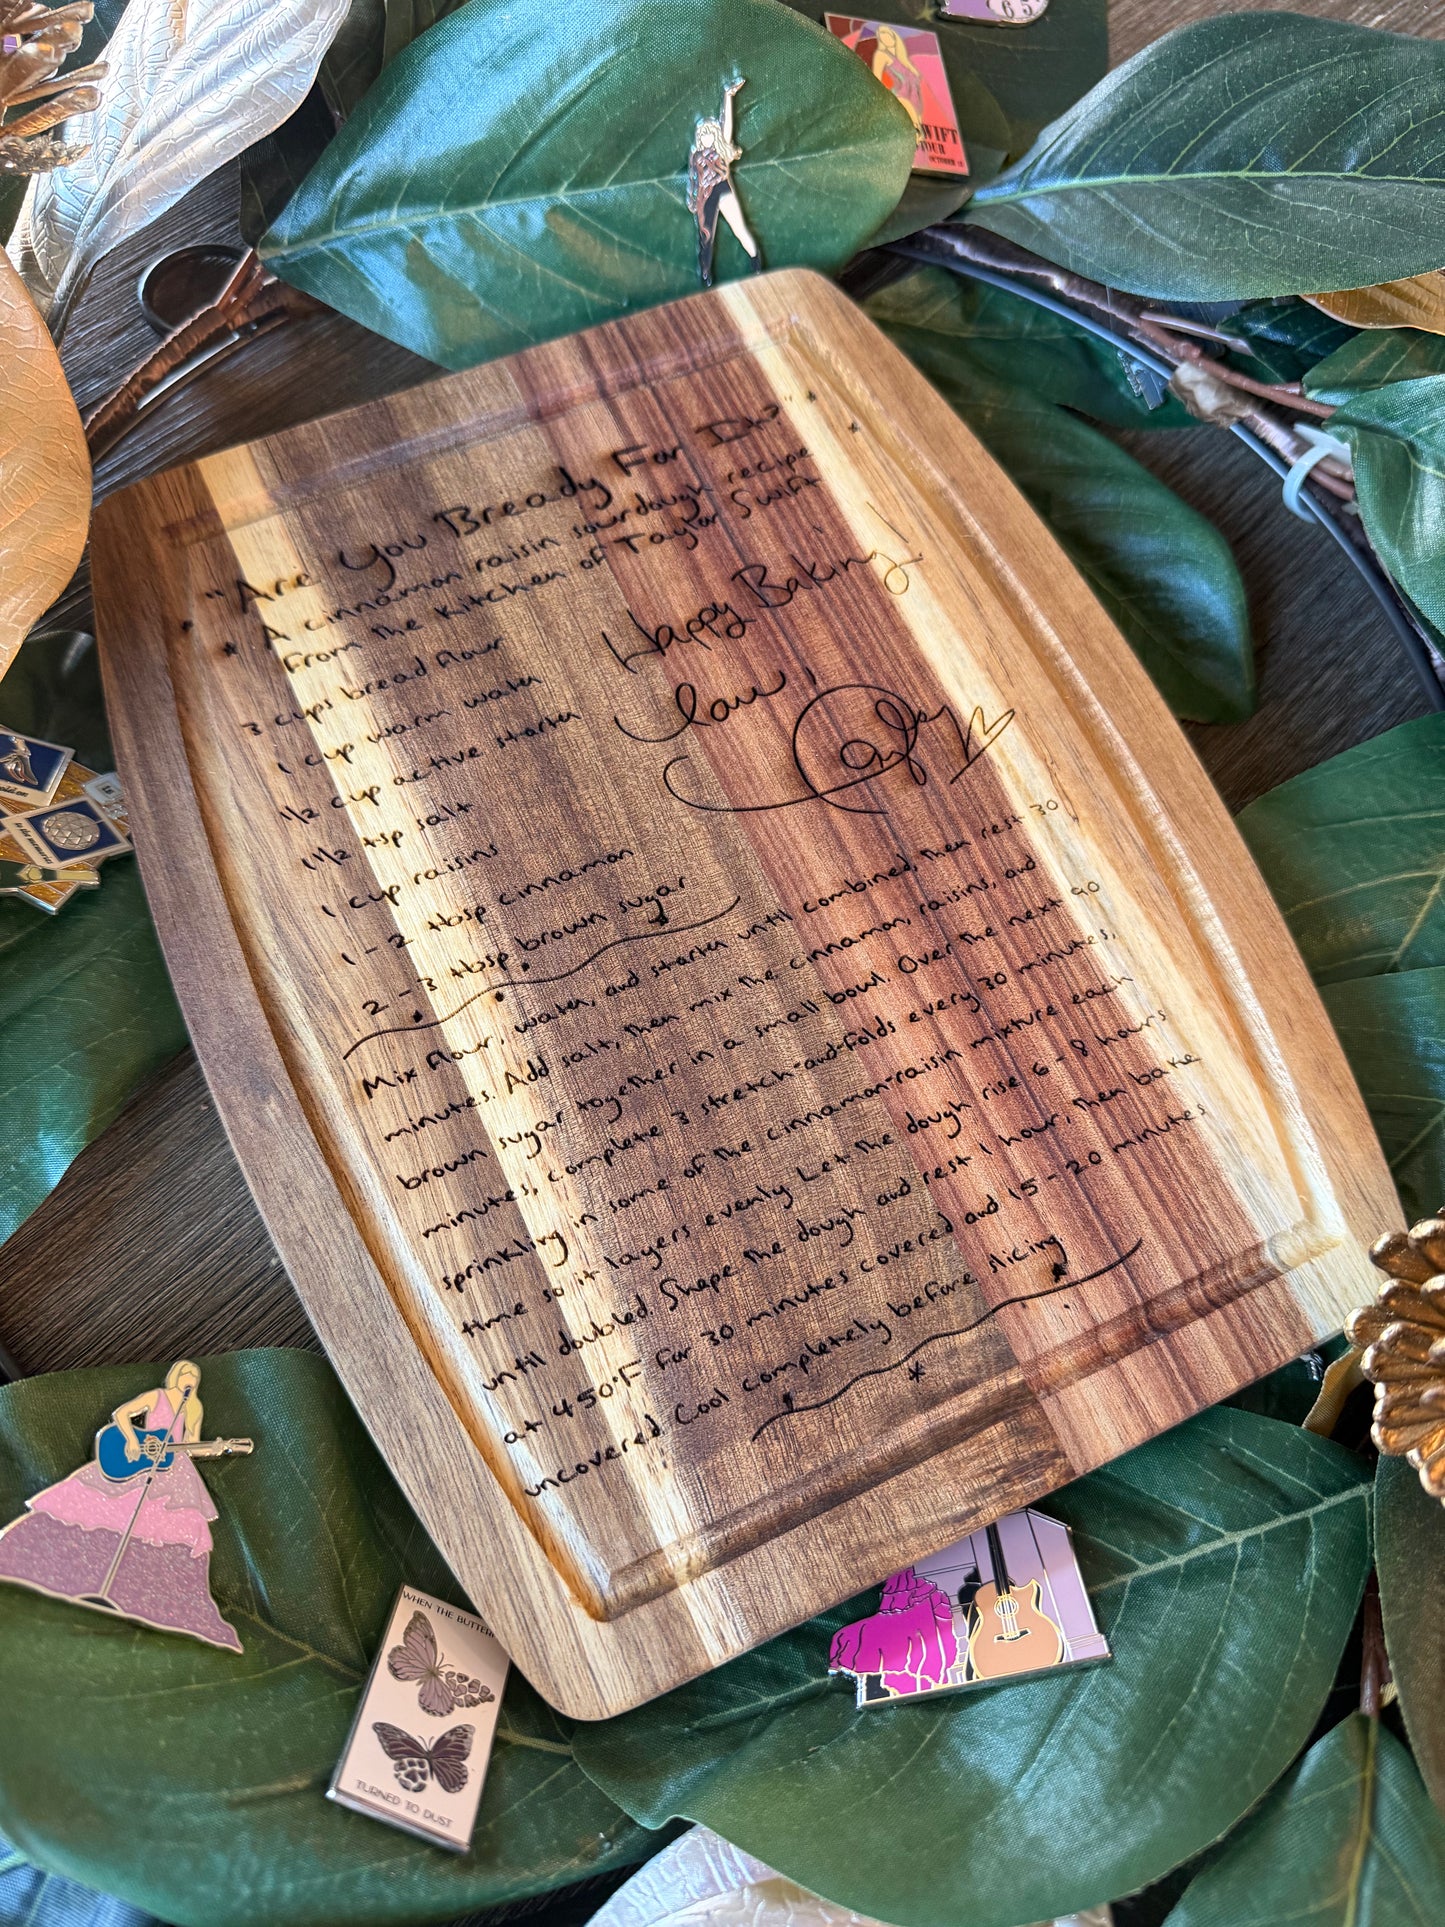 65
SWIFT
TOUR
OCTOBER 13
"Are You Bready For It?"
* A cinnamon raisin sourdough recipe
from the kitchen of Taylor Swift
3 cups bread flour
1 cup warm water
1/2 cup active starter
1 1/2 tsp salt
1 cup raisins
1-2 tbsp cinnamon
2-3 tbsp brown sugar
Happy Baking
Mix flour, water, and starter until combined, then rest 30
minutes. Add salt, then mix the cinnamon, raisins, and
brown sugar together in a small bowl. Over the next 90
minutes, complete 3 stretch-and-folds every 30 minutes,
sprinkling in some of the cinnamon-raisin mixture each
time so it layers evenly Let the dough rise 6-8 hours
until doubled. Shape the dough and rest 1 hour, then bake
at 450°F for 30 minutes covered and 15-20 minutes
uncovered. Cool completely before slicing.
*
in the memories
WHEN THE BUTTERF
TURNED TO DUST